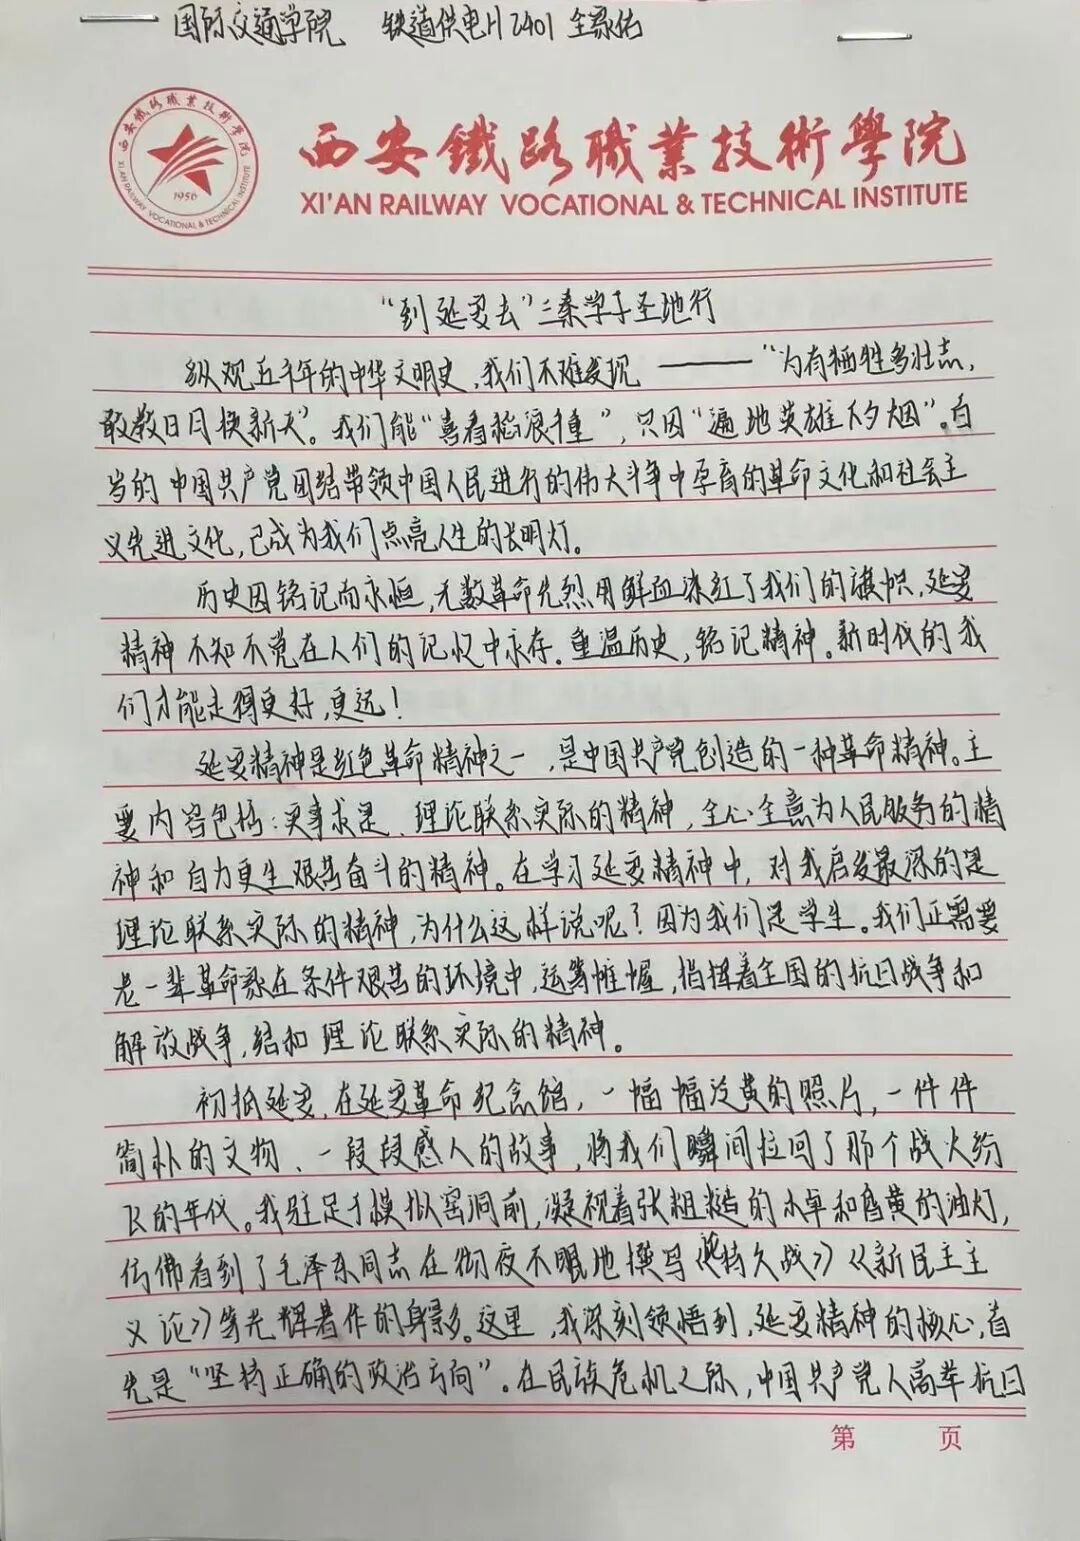 国际交通学院 铁道供电H2401 全家佑
西安鐵路職業技術學院
XI'AN RAILWAY VOCATIONAL & TECHNICAL INSTITUTE
西安鐵路職業技術學院
XI'AN RAILWAY VOCATIONAL & TECHNICAL INSTITUTE
1956
“到延安去”三秦学子圣地行
纵观五千年的中华文明史,我们不难发现 ——— “为有牺牲多壮志,
敢教日月换新天”。我们能“喜看稻浪千重”,只因“遍地英雄下夕烟”。百
岁的中国共产党团结带领中国人民进行的伟大斗争中孕育的革命文化和社会主
义先进文化,已成为我们点亮人生的长明灯。
历史因铭记而永恒,无数革命先烈用鲜血染红了我们的旗帜,延安
精神不知不觉在人们的记忆中永存。重温历史,铭记精神。新时代的我
们才能走得更好,更远!
延安精神是红色革命精神之一,是中国共产党创造的一种革命精神。主
要内容包括:实事求是、理论联系实际的精神,全心全意为人民服务的精
神和自力更生艰苦奋斗的精神。在学习延安精神中,对我启发最深的是
理论联系实际的精神,为什么这样说呢?因为我们是学生。我们正需要
老一辈革命家在条件艰苦的环境中,运筹帷幄,指挥着全国的抗日战争和
解放战争,结和理论联系实际的精神。
初抵延安,在延安革命纪念馆,一幅幅泛黄的照片,一件件
简朴的文物、一段段感人的故事,将我们瞬间拉回了那个战火纷
飞的年代。我驻足于模拟窑洞前,凝视着张粗糙的木桌和昏黄的油灯,
仿佛看到了毛泽东同志在彻夜不眠地撰写《论持久战》《新民主主
义论》等光辉著作的身影。这里,我深刻领悟到,延安精神的核心,首
先是“坚持正确的政治方向”。在民族危机之际,中国共产党人高举抗日
第 页